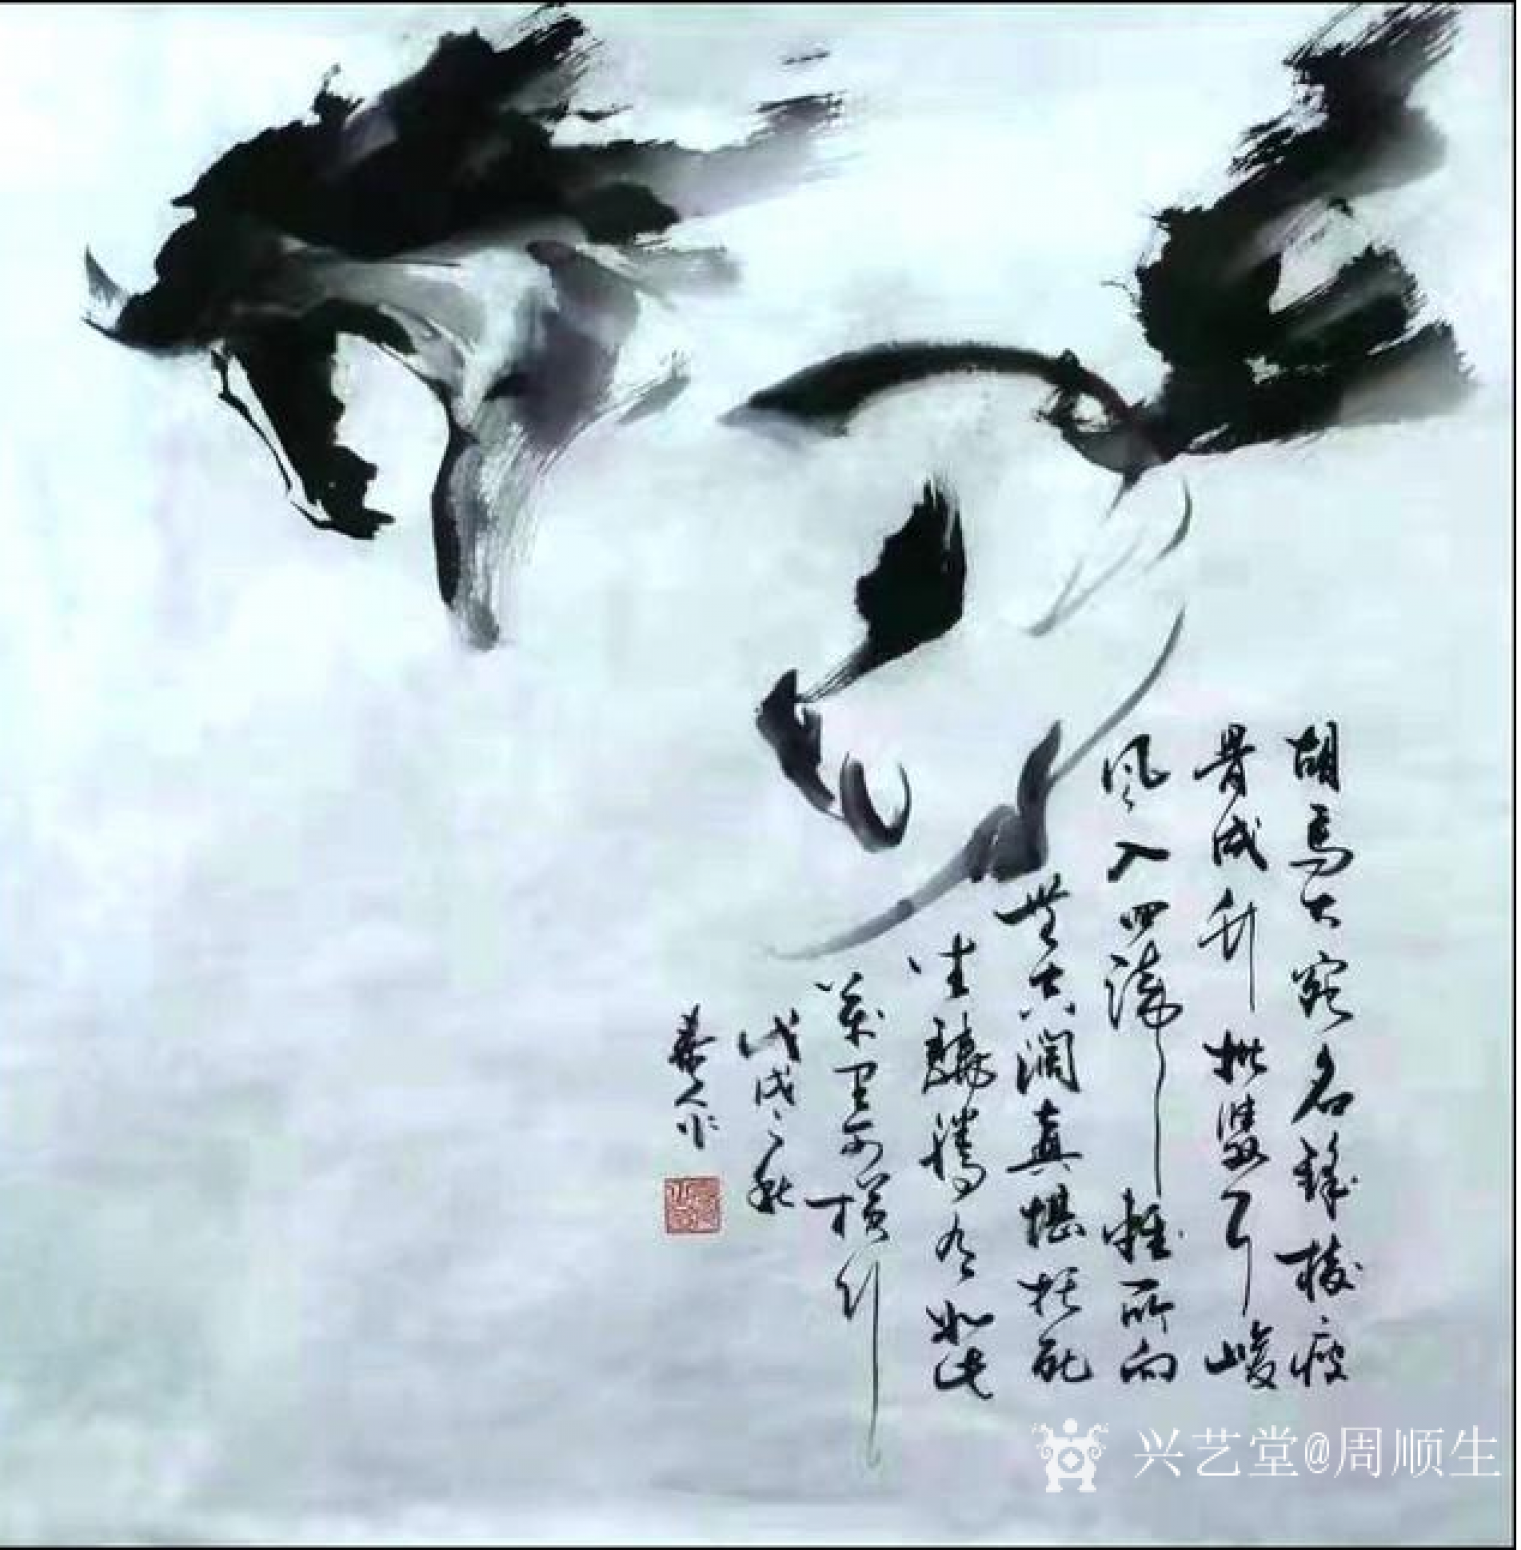 胡馬大宛名鋒棱瘦
骨成竹批雙耳峻
風入四蹄輕所向
無空闊真堪托死
生驍騰有如此
萬里可橫行
戊戌之秋
兴艺堂@周顺生